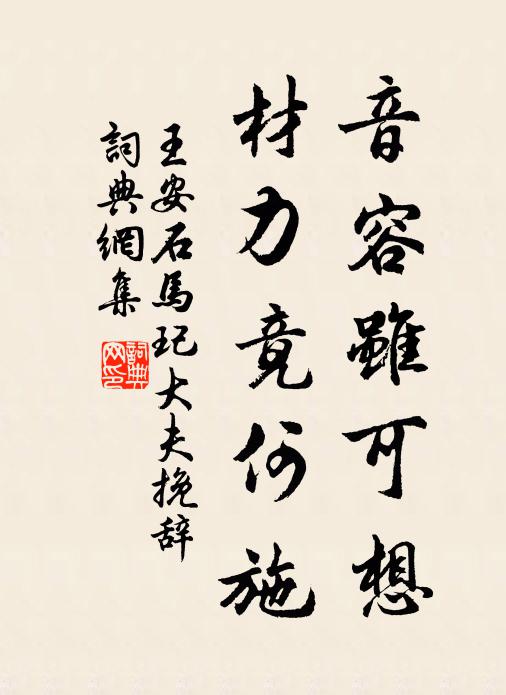 音容雖可想
材力竟何施
王安石馬玘大夫挽辞
詞典網集
詞典网印